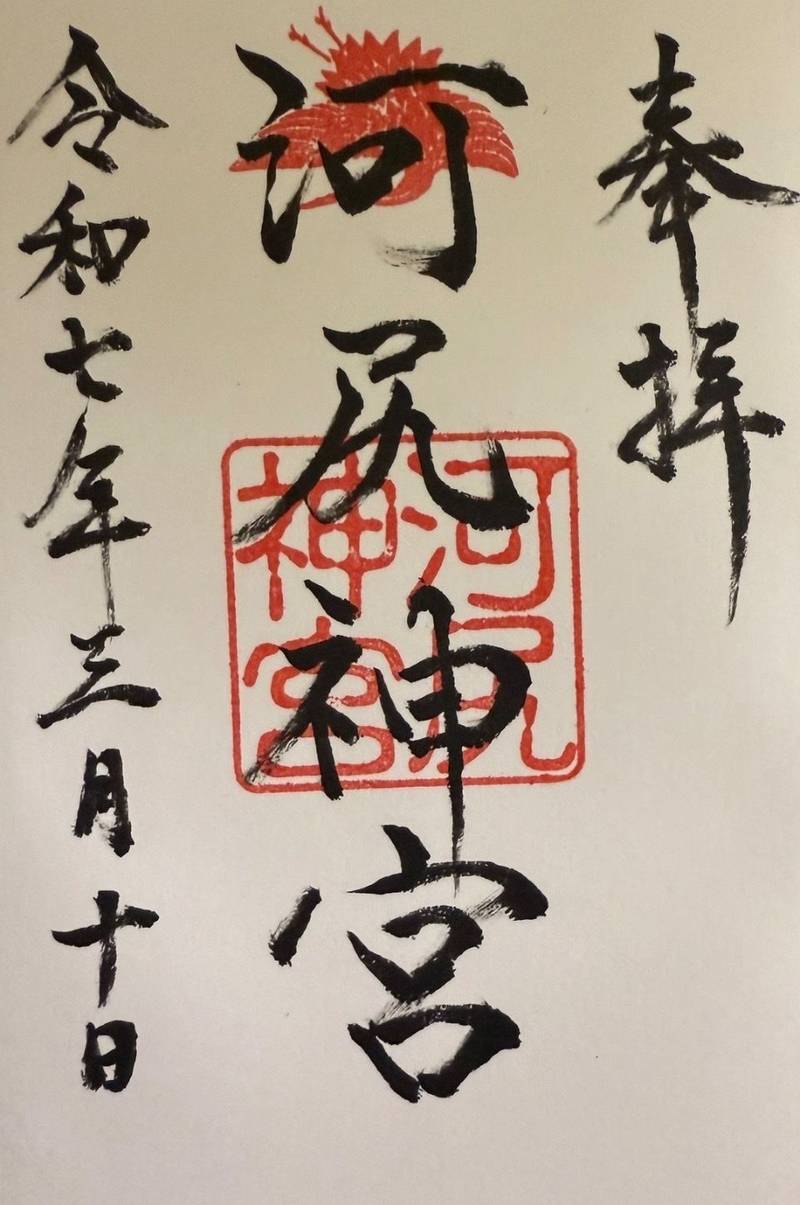 奉拝
河尻神宮
河尻神宮
令和七年三月十日